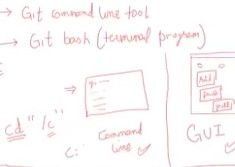 → Git command line tool
→ Git bash (terminal program)
cd "/c"
c:
Command
line
Add
Push
pull
GUI